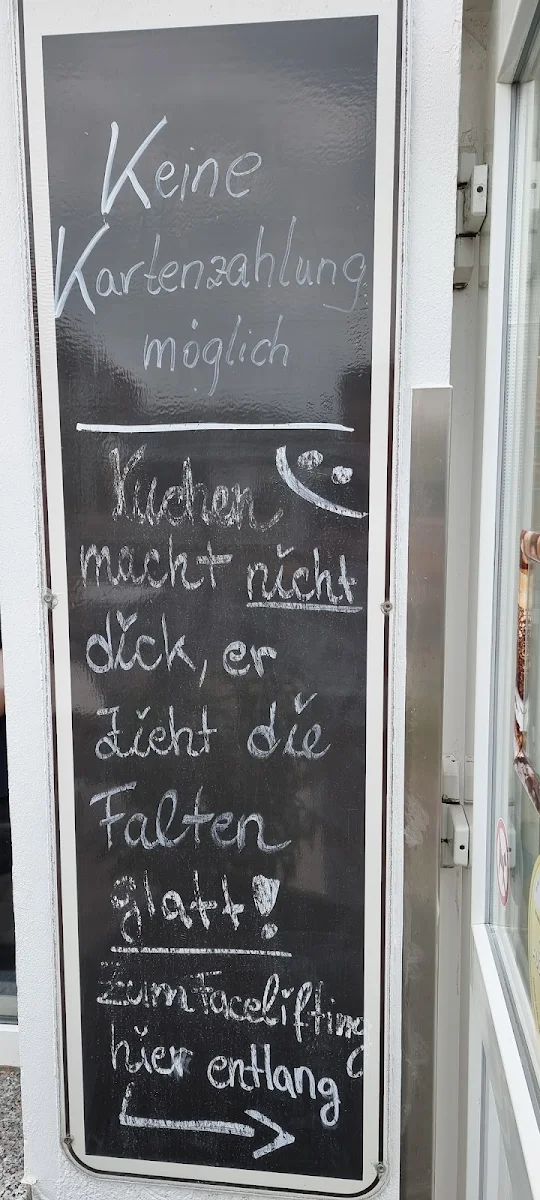 Keine
Kartenzahlung
möglich
Kuchen
macht nicht
dick, er
zieht die
Falten
glatt!
Zum Facelifting
hier entlang